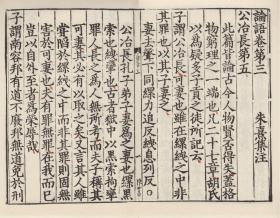 論語卷第三　朱熹集注
公冶長第五
此篇皆論古今人物賢否得失蓋格
物窮理之一端也凡二十七章胡氏
以為疑多子貢之徒所記云
子謂公冶長可妻也雖在縲絏之中
非其罪也以其子妻之
妻去聲下同縲力追反絏息列反○
公冶長孔子弟子妻為之妻也縲黑
索也絏攣也古者獄中以黑索拘攣
罪人長之為人無所考而夫子稱其
可妻其必有以取之矣又言其人雖
嘗陷於縲絏之中而非其罪則固無
害於可妻也夫有罪無罪在我而已
豈以自外至者為榮辱哉
子謂南容邦有道不廢邦無道免於刑